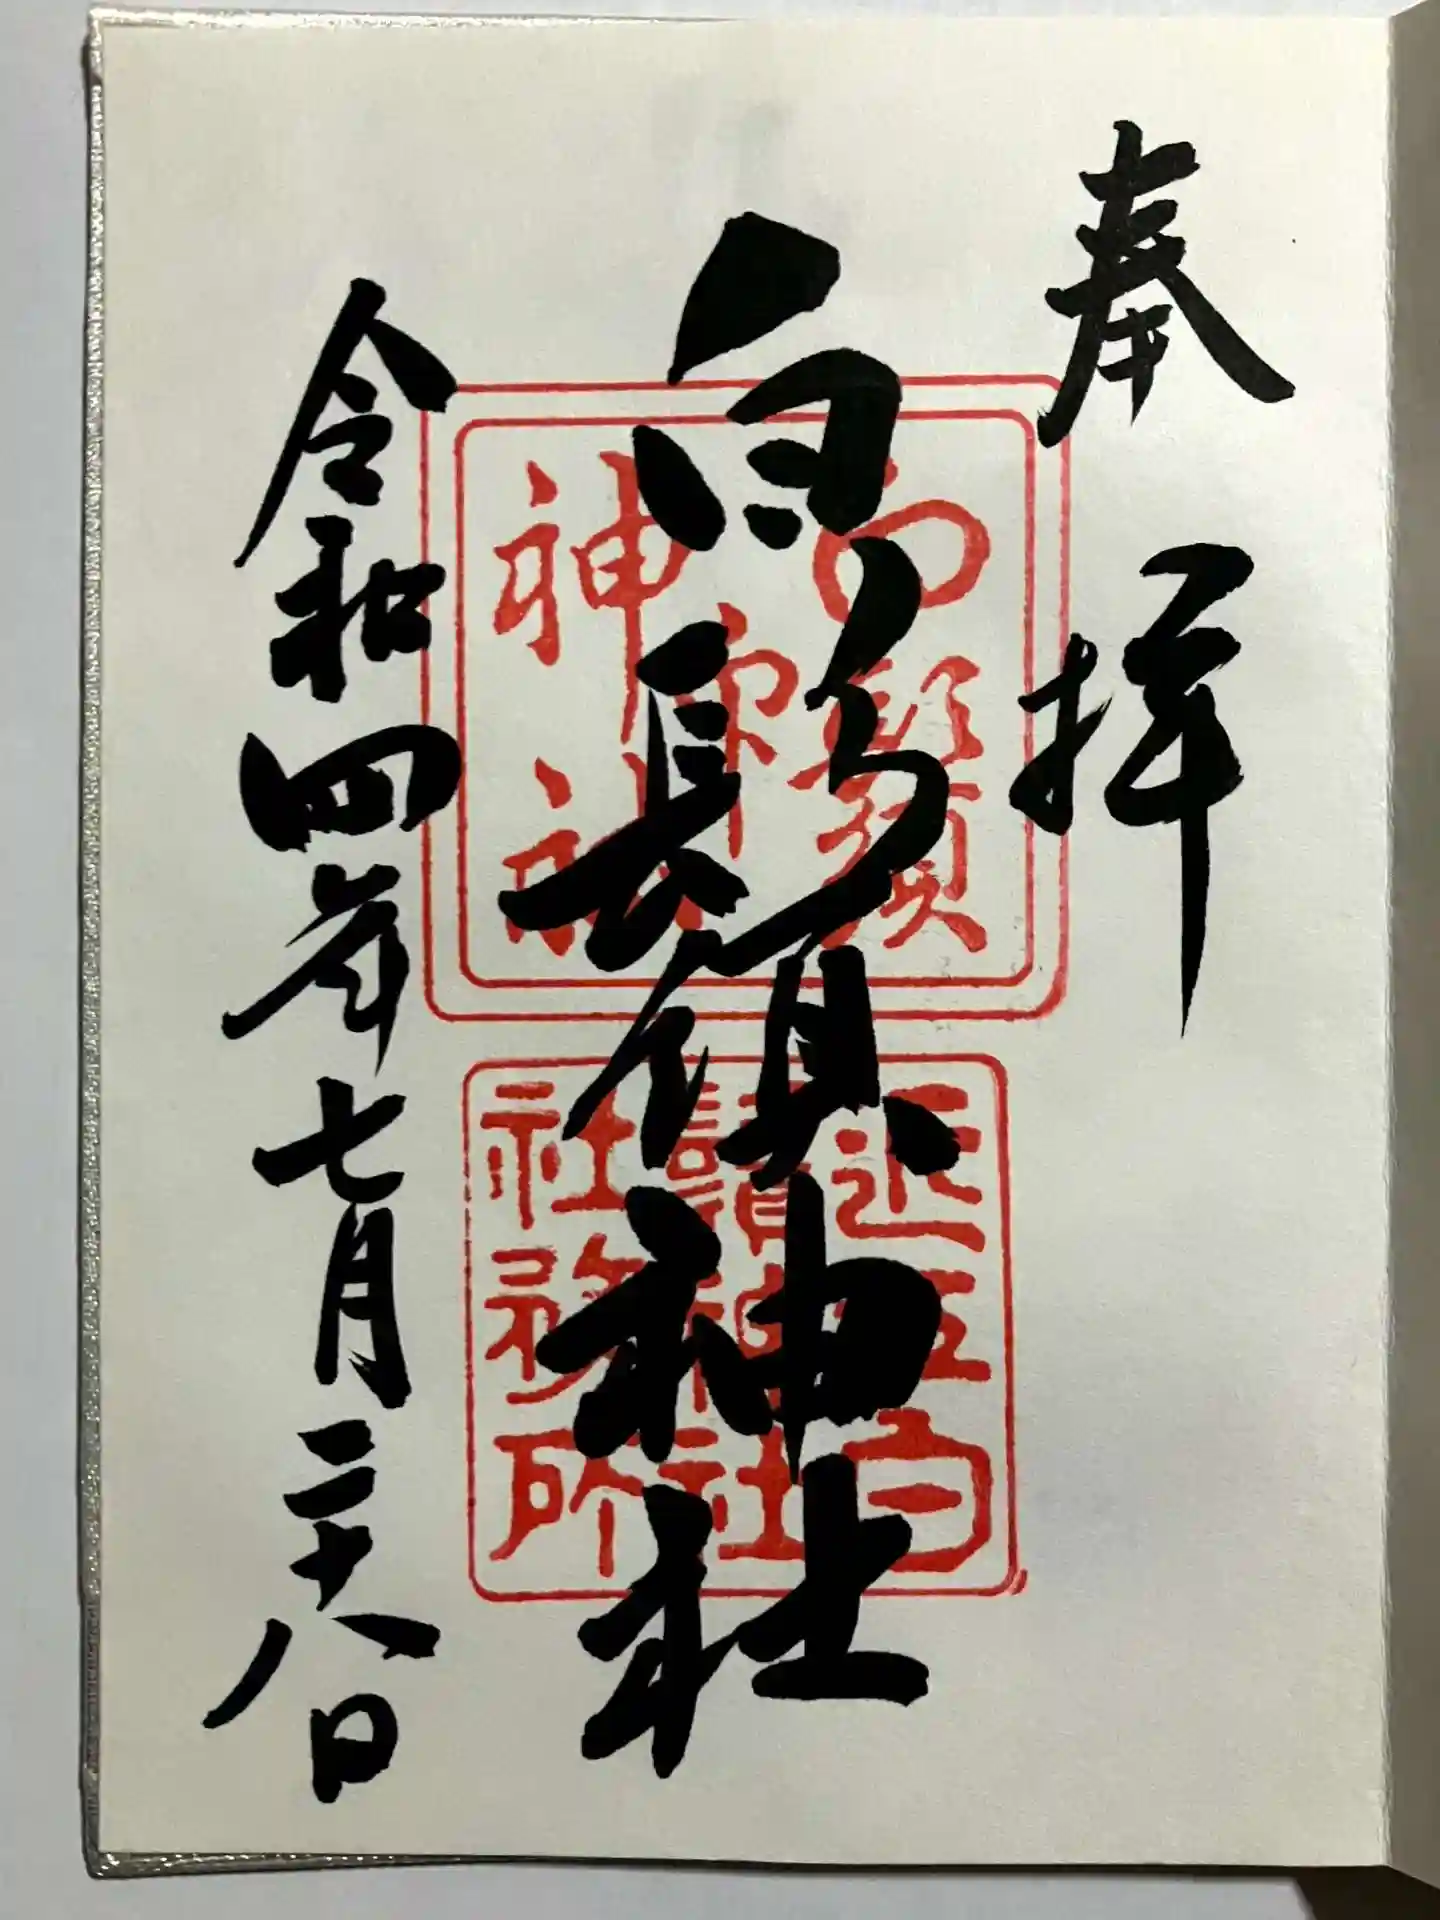 奉拝
白鬚神社
令和四年七月二十八日
白鬚
神社
近江白
鬚神社
社務所